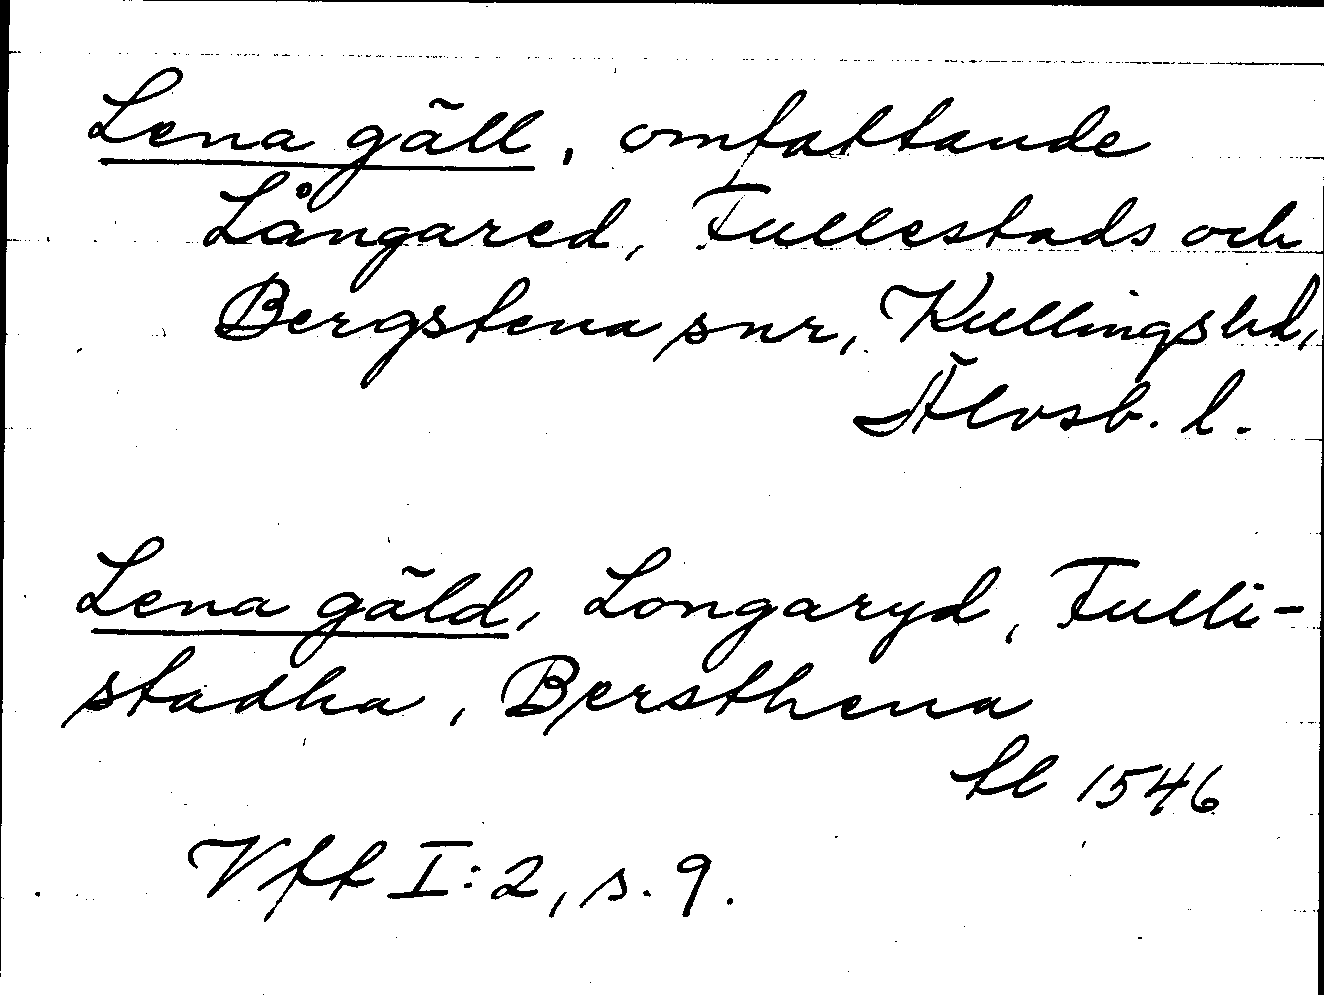 Lena gäll, omfattande
Långared, Fullestads och
Bergstena snr, Kullings hd,
Älvsb. l.
Lena gäld, Longaryd, Fulli-
stadha, Bersthena
tl 1546
Vft I:2, s. 9.